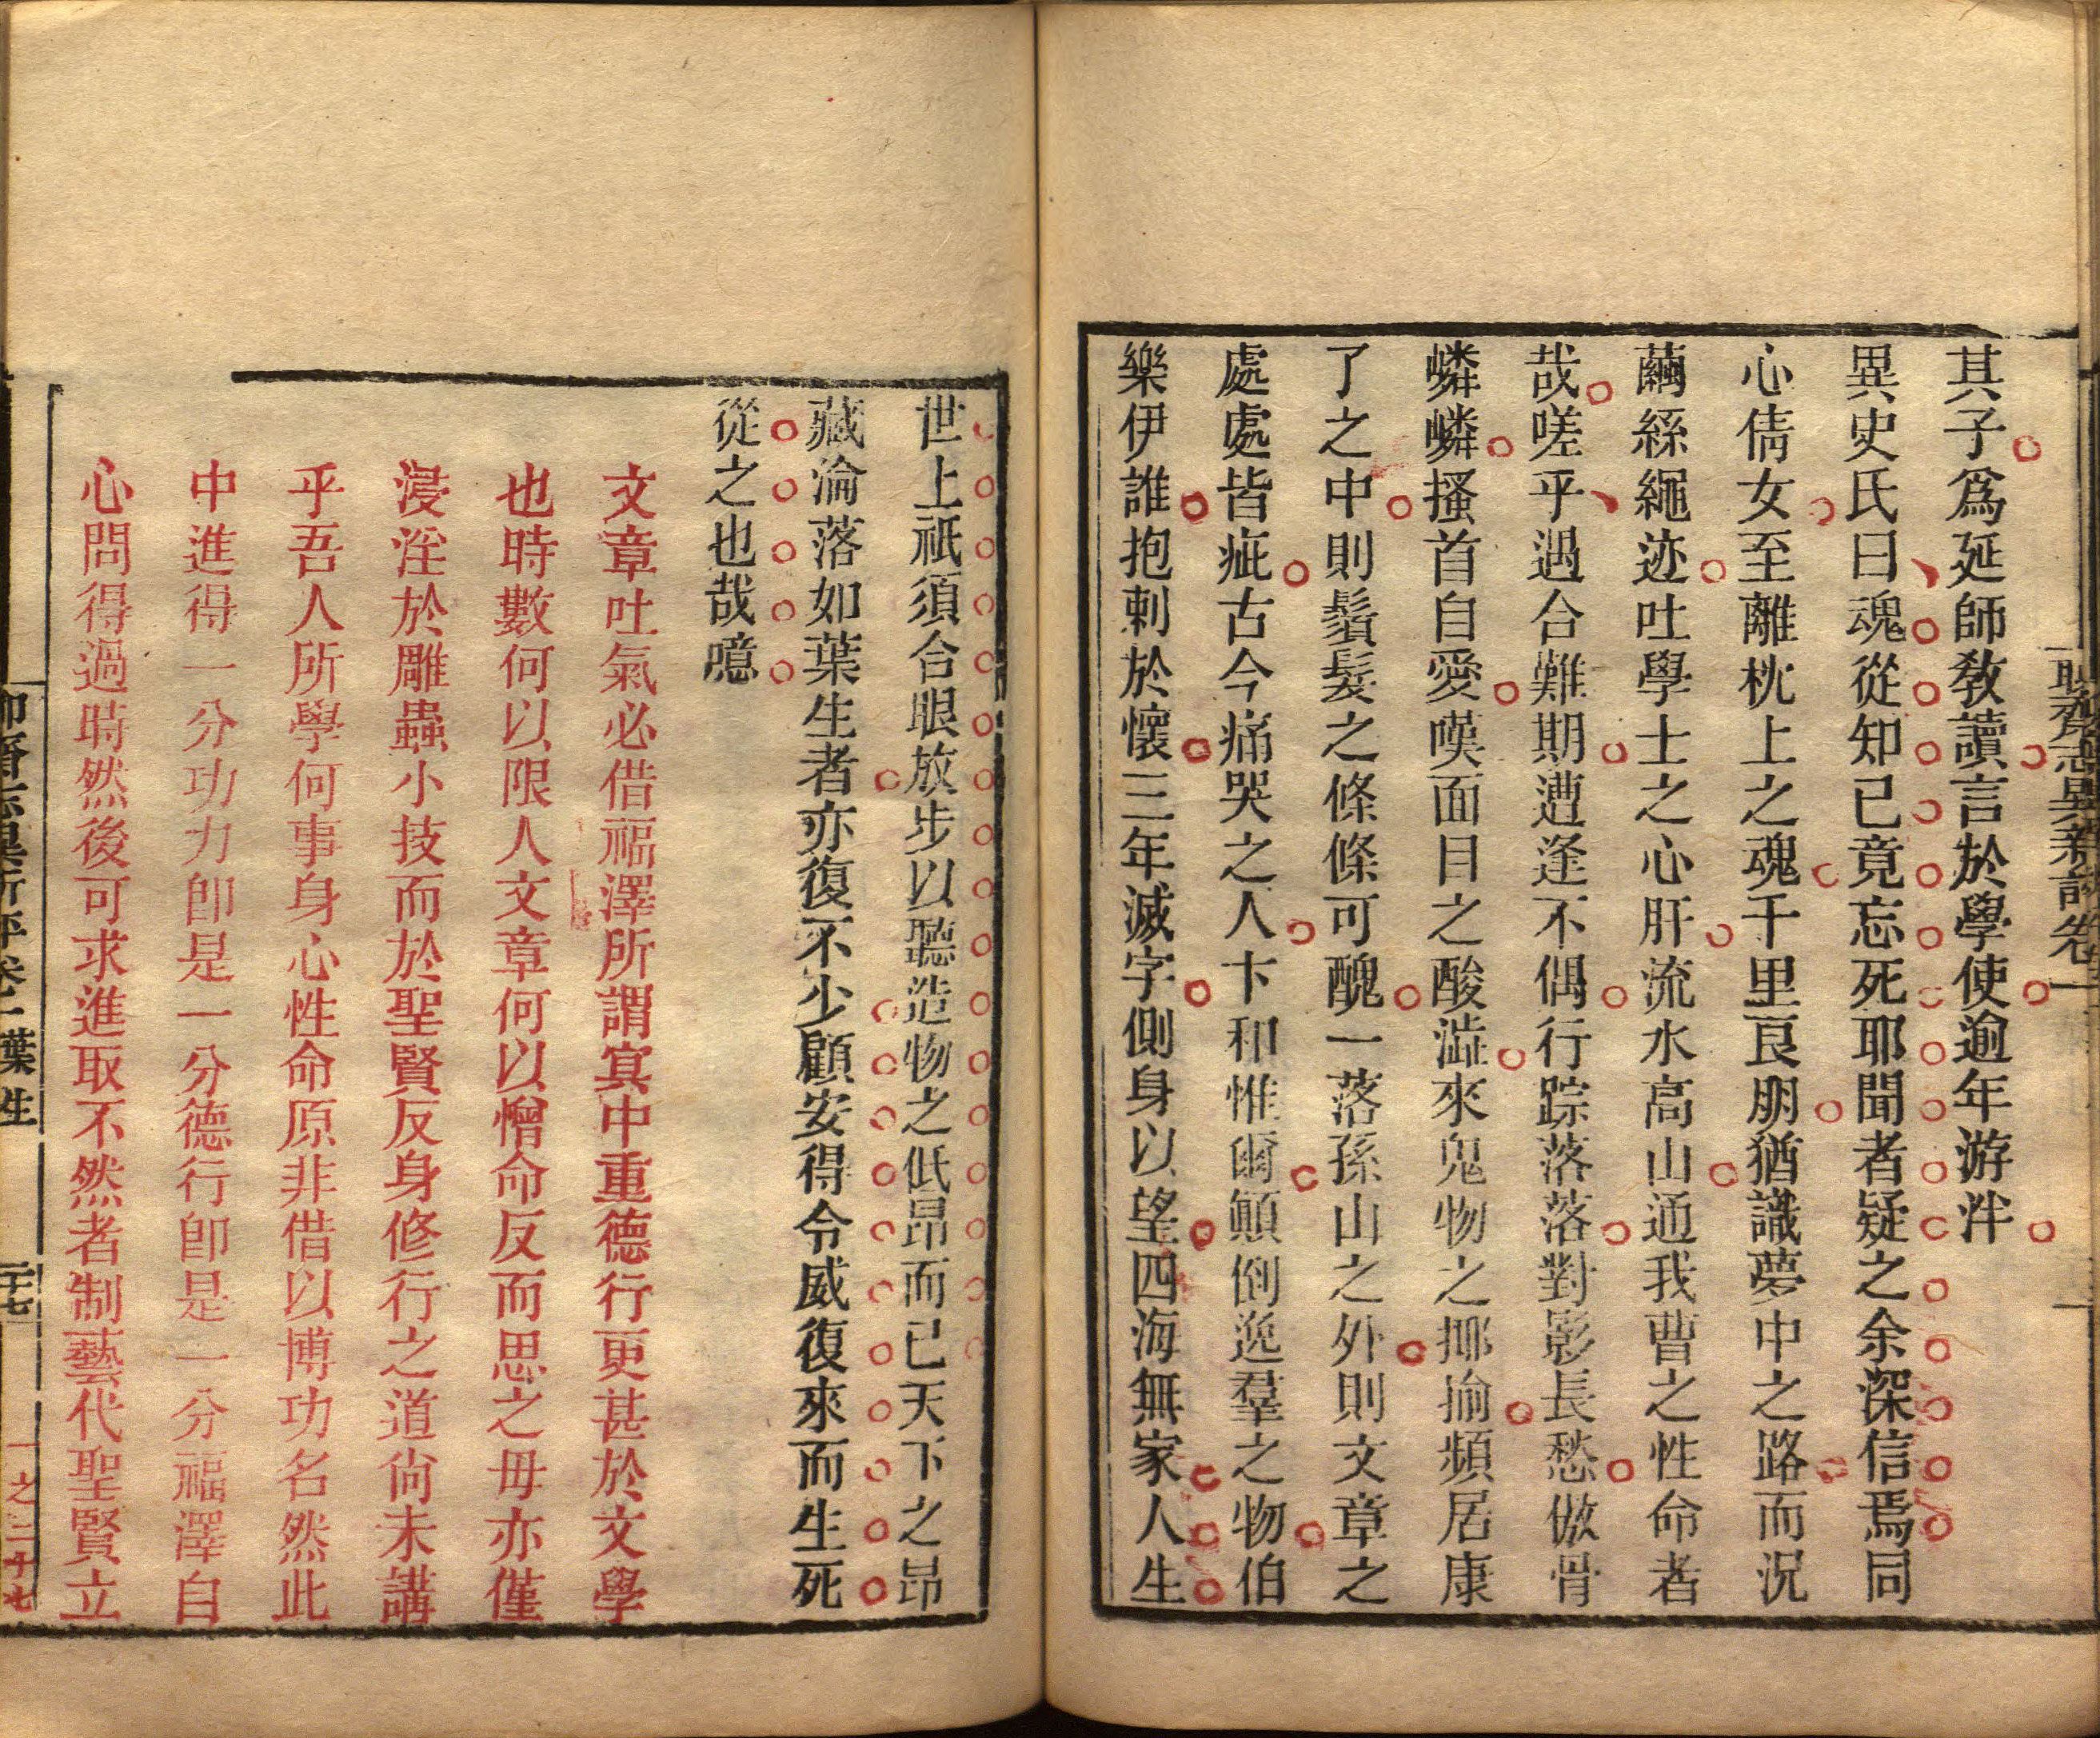 聊齋志異新評卷一
其子爲延師敎讀言於學使逾年游泮
異史氏曰魂從知己竟忘死耶聞者疑之余深信焉同
心倩女至離枕上之魂千里良朋猶識夢中之路而況
繭絲繩迹吐學士之心肝流水高山通我曹之性命者
哉嗟乎遇合難期遭逢不偶行踪落落對影長愁傲骨
嶙嶙搔首自愛嘆面目之酸澁來鬼物之揶揄頻居康
了之中則鬚髮之條條可醜一落孫山之外則文章之
處處皆疵古今痛哭之人卞和惟爾顚倒逸羣之物伯
樂伊誰抱刺於懷三年滅字側身以望四海無家人生
世上祇須合眼放步以聽造物之低昂而已天下之昂
藏淪落如葉生者亦復不少顧安得令威復來而生死
從之也哉噫
文章吐氣必借福澤所謂冥中重德行更甚於文學
也時數何以限人文章何以憎命反而思之毋亦僅
浸淫於雕蟲小技而於聖賢反身修行之道尙未講
乎吾人所學何事身心性命原非借以博功名然此
中進得一分功力卽是一分德行卽是一分福澤自
心問得過時然後可求進取不然者制藝代聖賢立
聊齋志異新評卷一 葉生 二十七 一之二十七